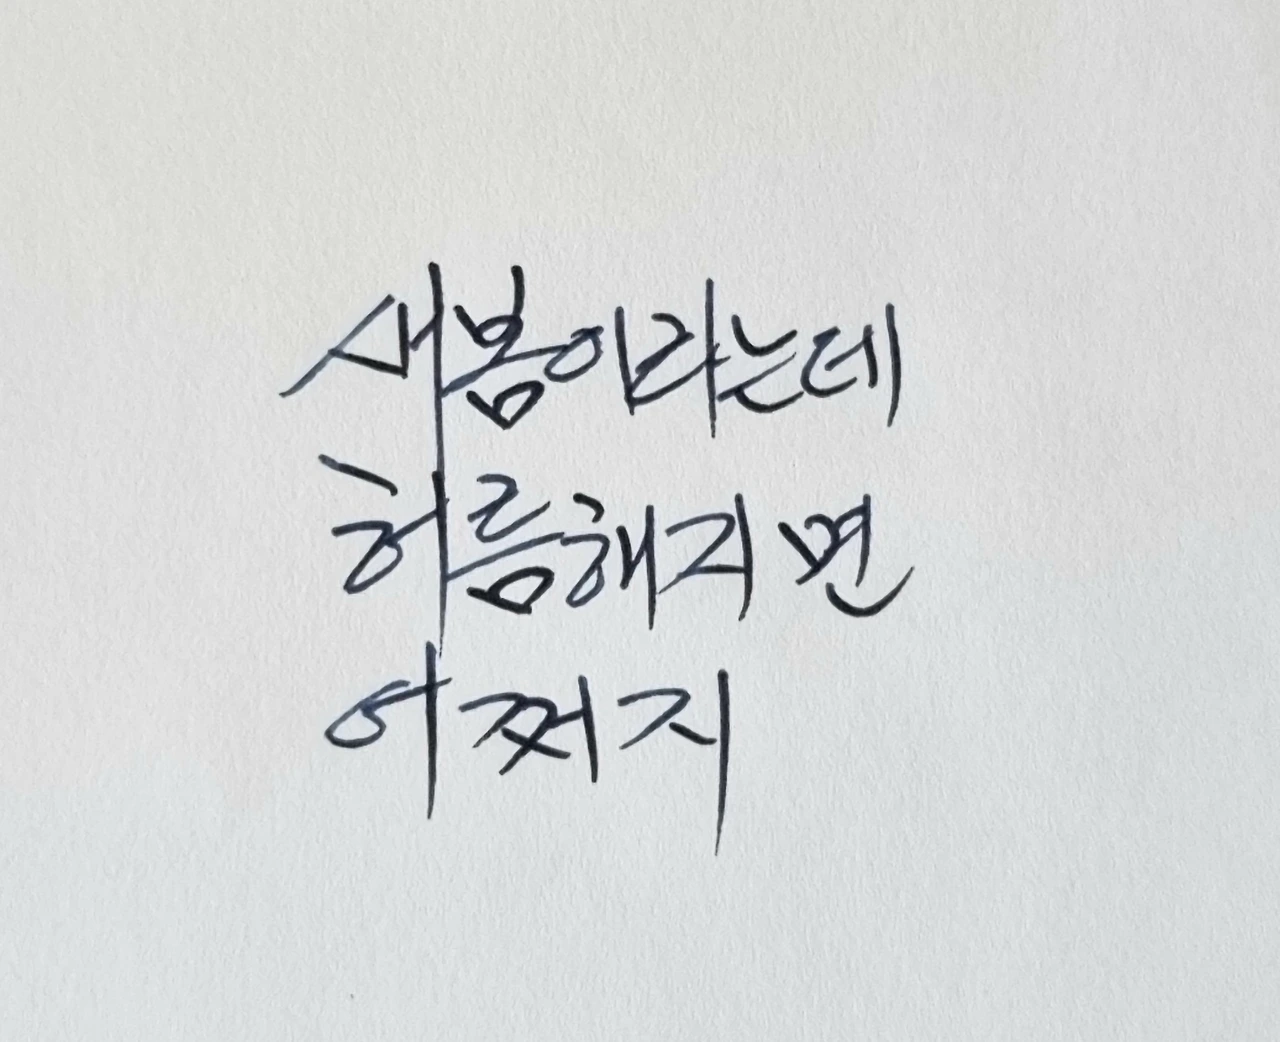 새봄이라는데
허름해지면
어쩌지